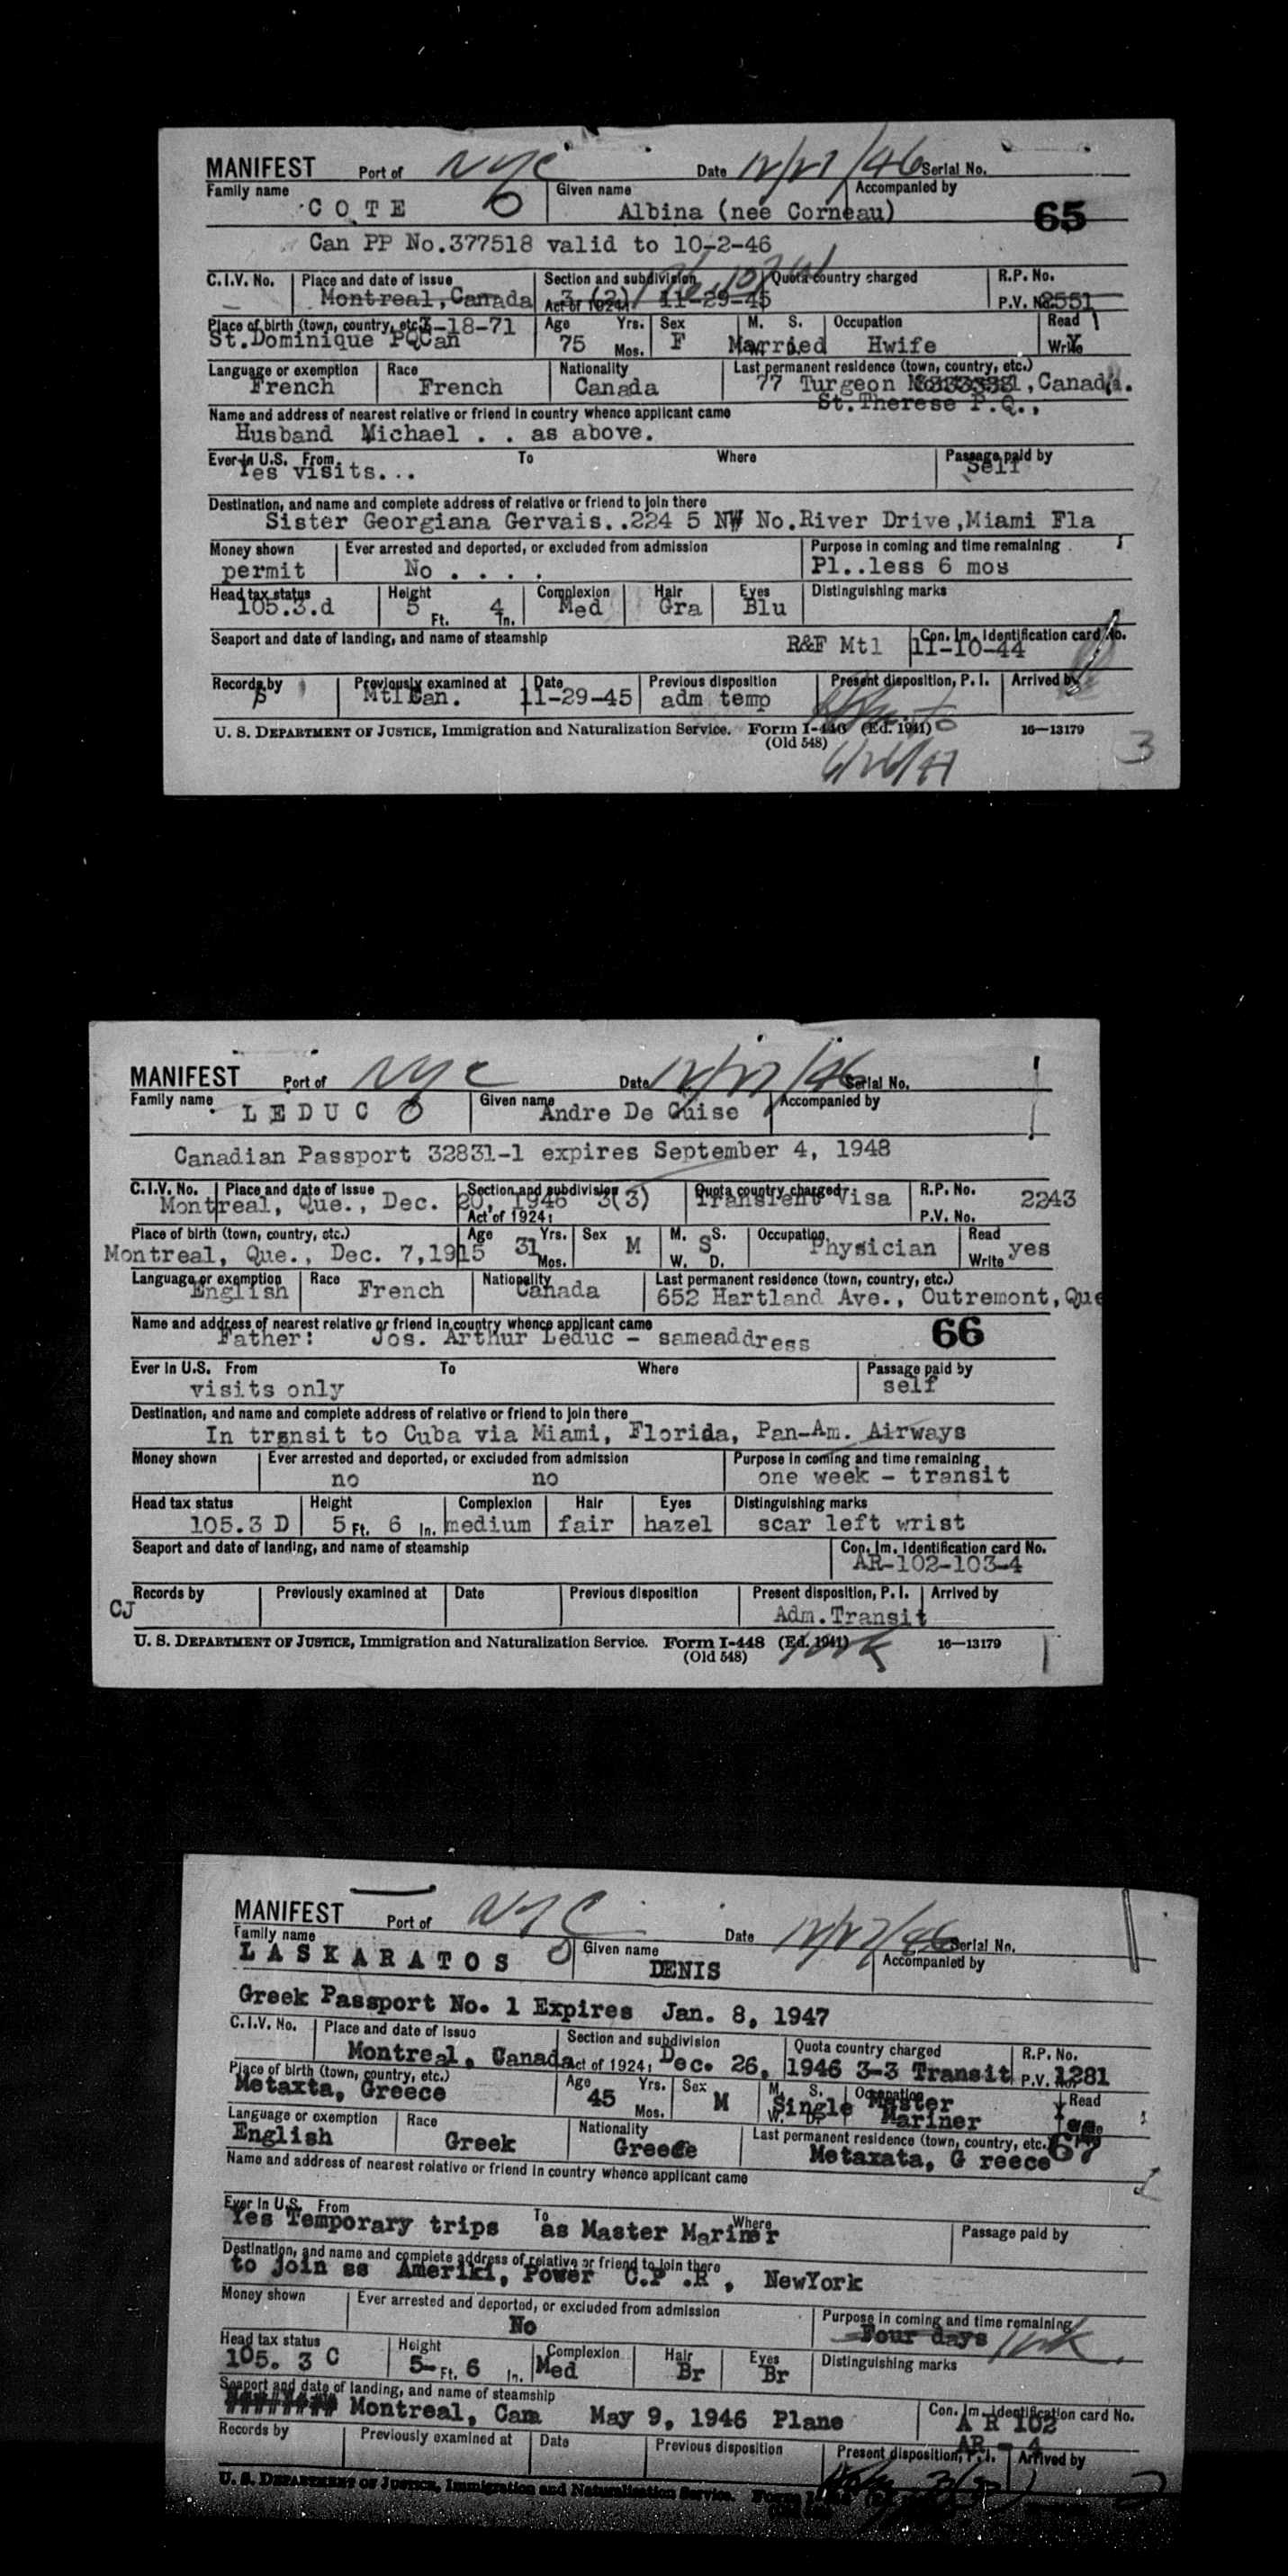 MANIFEST Port of NYC Date 12/27/46 Serial No.
Family name Given name Accompanied by
COTE Albina (nee Corneau) 65
Can PP No.377518 valid to 10-2-46
C.I.V. No. Place and date of issue Section and subdivision Quota country charged R.P. No.
Montreal, Canada Act of 1924: 3 (2) 11-29-45 P.V. No. 2551
Place of birth (town, country, etc.) -18-71 Age Yrs. Sex M. S. Occupation Read
St.Dominique PQCan 75 Mos. F Married Hwife Write Y
Language or exemption Race Nationality Last permanent residence (town, country, etc.)
French French Canada 77 Turgeon , Canada.
St.Therese P.Q.,
Name and address of nearest relative or friend in country whence applicant came
Husband Michael . . as above.
Ever in U.S. From To Where Passage paid by
Yes visits... Self
Destination, and name and complete address of relative or friend to join there
Sister Georgiana Gervais..224 5 NW No.River Drive,Miami Fla
Money shown Ever arrested and deported, or excluded from admission Purpose in coming and time remaining
permit No . . . . Pl..less 6 mos
Head tax status Height Complexion Hair Eyes Distinguishing marks
105.3.d 5 Ft. 4 In. Med Gra Blu
Seaport and date of landing, and name of steamship Con. Im. Identification card No.
R&F Mtl 11-10-44
Records by Previously examined at Date Previous disposition Present disposition, P. I. Arrived by
Mtl Can. 11-29-45 adm temp
U. S. DEPARTMENT OF JUSTICE, Immigration and Naturalization Service. Form I-448 (Ed. 1941) 16—13179
(Old 548)
6/26/47 3
MANIFEST Port of NYC Date 12/27/46 Serial No.
Family name Given name Accompanied by
LEDUC Andre De Guise
Canadian Passport 32831-1 expires September 4, 1948
C.I.V. No. Place and date of issue Section and subdivision Quota country charged R.P. No.
Montreal, Que., Dec. 20, 1946 3(3) Transient Visa 2243
Act of 1924: P.V. No.
Place of birth (town, country, etc.) Age Yrs. Sex M. S. Occupation Read
Montreal, Que., Dec. 7,1915 31 Mos. M S W. D. Physician Write yes
Language or exemption Race Nationality Last permanent residence (town, country, etc.)
English French Canada 652 Hartland Ave., Outremont, Que
Name and address of nearest relative or friend in country whence applicant came
Father: Jos. Arthur Leduc - sameaddress 66
Ever in U.S. From To Where Passage paid by
visits only self
Destination, and name and complete address of relative or friend to join there
In transit to Cuba via Miami, Florida, Pan-Am. Airways
Money shown Ever arrested and deported, or excluded from admission Purpose in coming and time remaining
no no one week - transit
Head tax status Height Complexion Hair Eyes Distinguishing marks
105.3 D 5 Ft. 6 In. medium fair hazel scar left wrist
Seaport and date of landing, and name of steamship Con. Im. Identification card No.
AR-102-103-4
Records by Previously examined at Date Previous disposition Present disposition, P. I. Arrived by
CJ Adm.Transit
U. S. DEPARTMENT OF JUSTICE, Immigration and Naturalization Service. Form I-448 (Ed. 1941) 16—13179
(Old 548)
MANIFEST Port of NYC Date 12/27/46 Serial No.
Family name Given name Accompanied by
LASKARATOS DENIS
Greek Passport No. 1 Expires Jan. 8, 1947
C.I.V. No. Place and date of issue Section and subdivision Quota country charged R.P. No.
Montreal, Canada Act of 1924: Dec. 26, 1946 3-3 Transit P.V. No. 1281
Place of birth (town, country, etc.) Age Yrs. Sex M. S. Occupation Read
Metaxta, Greece 45 Mos. M Single W. D. Master Mariner
Language or exemption Race Nationality Last permanent residence (town, country, etc.) 67
English Greek Greece Metaxata, G reece
Name and address of nearest relative or friend in country whence applicant came
Ever in U.S. From To Where Passage paid by
Yes Temporary trips as Master Mariner
Destination, and name and complete address of relative or friend to join there
to join ss Ameriki, Power C.P .R , NewYork
Money shown Ever arrested and deported, or excluded from admission Purpose in coming and time remaining
No Four days
Head tax status Height Complexion Hair Eyes Distinguishing marks
105. 3 C 5- Ft. 6 In. Med Br Br
Seaport and date of landing, and name of steamship Con. Im. Identification card No.
######## Montreal, Cam May 9, 1946 Plane A R 102
AR - 4
Records by Previously examined at Date Previous disposition Present disposition, P. I. Arrived by
U. S. DEPARTMENT OF JUSTICE, Immigration and Naturalization Service.